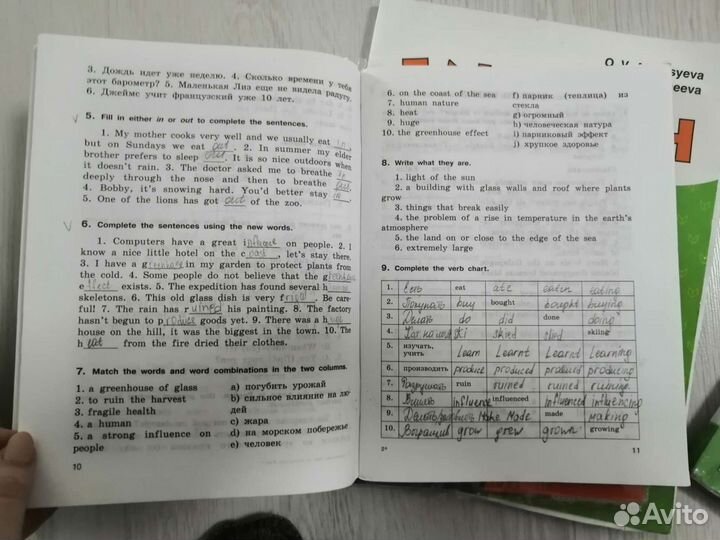 3. Дождь идет уже неделю. 4. Сколько времени у тебя
этот барометр? 5. Маленькая Лиз еще не видела радугу.
6. Джеймс учит французский уже 10 лет.
5. Fill in either in or out to complete the sentences.
1. My mother cooks very well and we usually eat in,
but on Sundays we eat out. 2. In summer my elder
brother prefers to sleep out. It is so nice outdoors when
it doesn't rain. 3. The doctor asked me to breathe in
deeply through the nose and then to breathe out.
4. Bobby, it's snowing hard. You'd better stay in.
5. One of the lions has got out of the zoo.
6. Complete the sentences using the new words.
1. Computers have a great influence on people. 2. I
know a nice little hotel on the coast, let's stay there.
3. I have a greenhouse in my garden to protect plants from
the cold. 4. Some people do not believe that the greenhouse
effect exists. 5. The expedition has found several h
skeletons. 6. This old glass dish is very f. Be care-
ful! 7. The rain has ruined his painting. 8. The factory
hasn't begun to produce goods yet. 9. There was a huge
house on the hill, it was the biggest in the town. 10. The
heat from the fire dried their clothes.
7. Match the words and word combinations in the two columns.
1. a greenhouse of glass a) погубить урожай
2. to ruin the harvest b) сильное влияние на лю-
3. fragile health дей
4. a human c) жара
5. a strong influence on d) на морском побережье
people e) человек
10
6. on the coast of the sea f) парник (теплица) из
7. human nature стекла
8. heat g) огромный
9. huge h) человеческая натура
10. the greenhouse effect i) парниковый эффект
j) хрупкое здоровье
8. Write what they are.
1. light of the sun
2. a building with glass walls and roof where plants
grow
3. things that break easily
4. the problem of a rise in temperature in the earth's
atmosphere
5. the land on or close to the edge of the sea
6. extremely large
9. Complete the verb chart.
1. Есть eat ate eaten eating
2. Покупать buy bought bought buying
3. Делать do did done doing
4. ski skied skied skiing
5. изучать, учить Learn Learnt Learnt Learning
6. производить produce produced produced producing
7. Разрушать ruin ruined ruined ruining
8. Влиять influence influenced influenced influencing
9. Make Made made making
10. grow grew grown growing
2*
11
O. V.
syeva
eeva
Avito